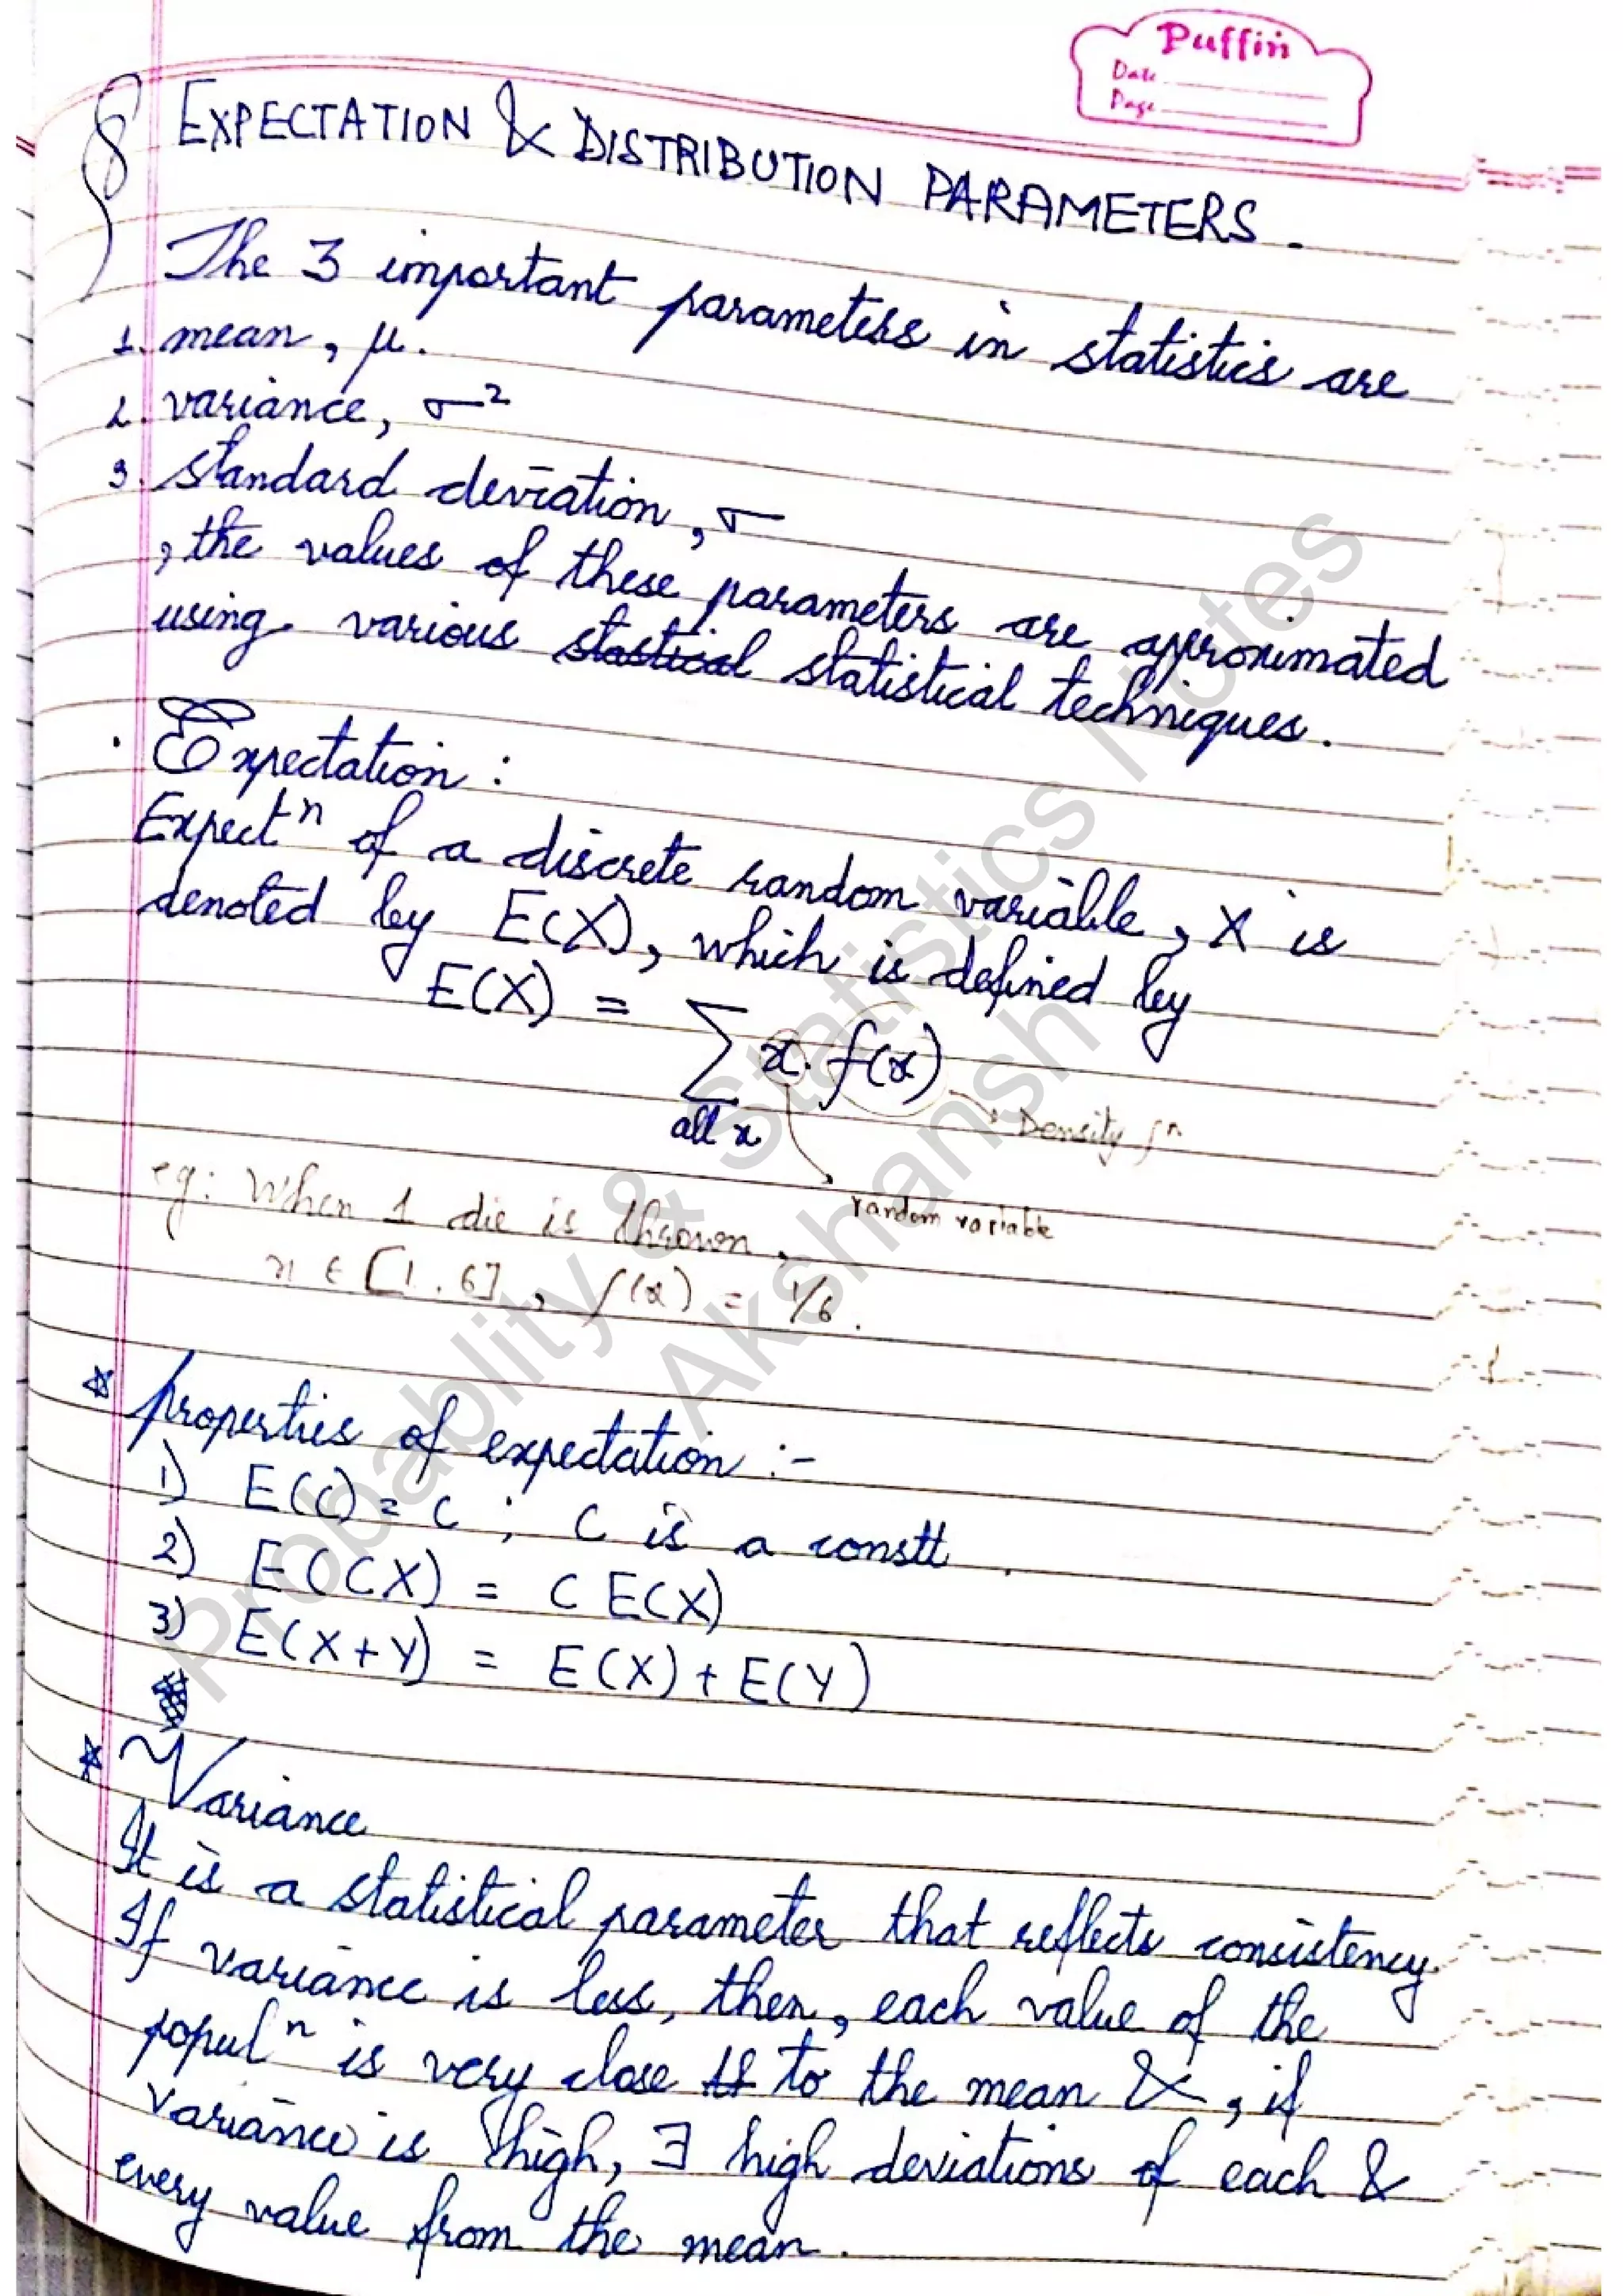 Puffin
Date
Page
§ EXPECTATION & DISTRIBUTION PARAMETERS.
The 3 important parameters in statistics are
1. mean, μ.
2. variance, σ²
3. standard deviation, σ
, the values of these parameters are approximated
using various stastical statistical techniques.
. Expectation :
Expectⁿ of a discrete random variable, X is
denoted by E(X), which is defined by
E(X) = Σ x. f(x)
all x
Density fⁿ
random variable
eg: When 1 die is thrown,
x ∈ [1, 6], f(x) = 1/6.
* properties of expectation :-
1) E(C) = C ; C is a constt.
2) E(CX) = C E(X)
3) E(X+Y) = E(X) + E(Y)
* Variance
It is a statistical parameter that reflects consistency.
If variance is less, then, each value of the
populⁿ is very close to the mean &, if
variance is high, ∃ high deviations of each &
every value from the mean.
Probablity & Statistics Notes
Akshansh